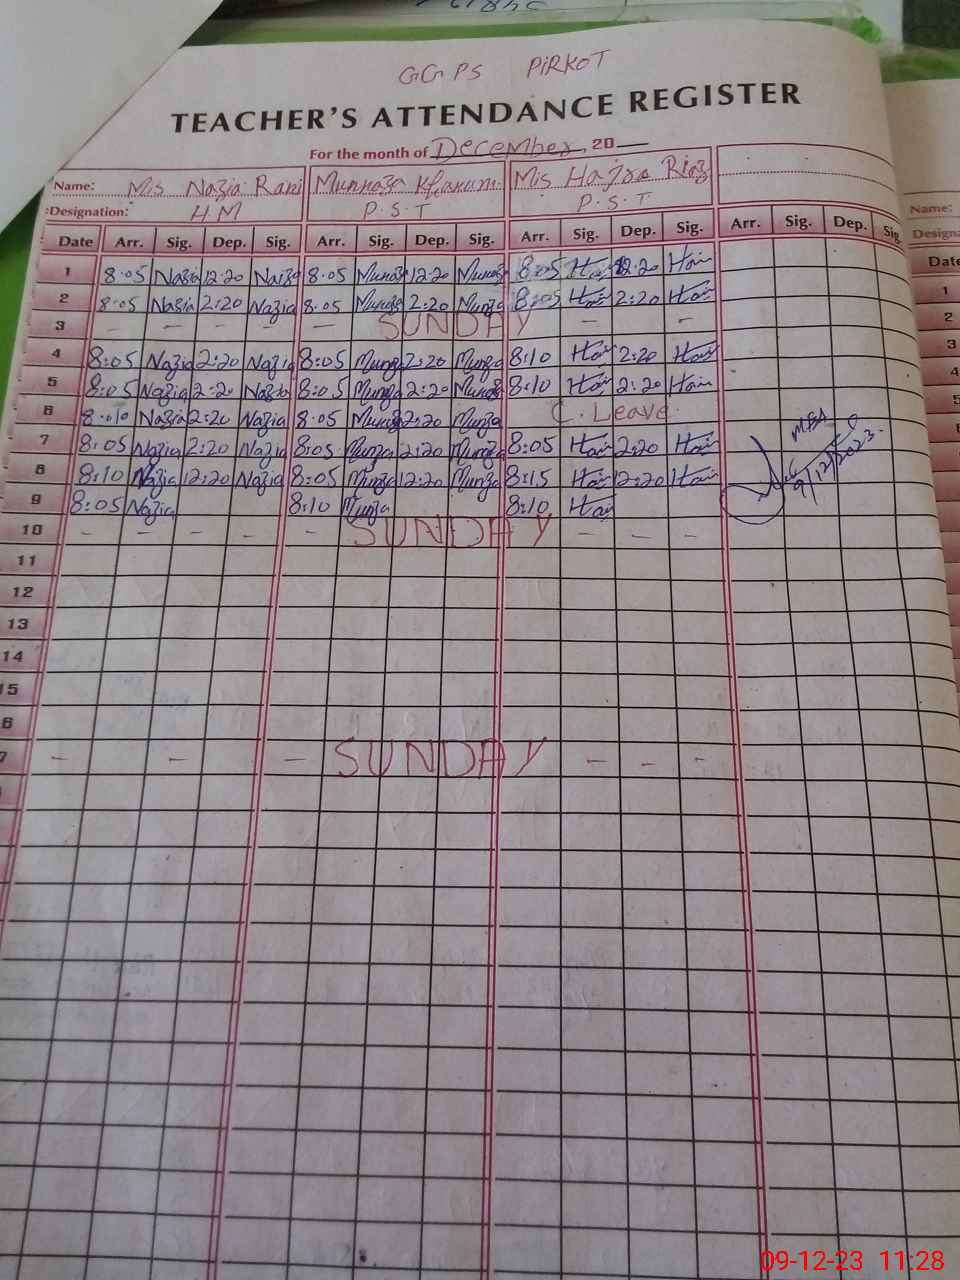 GG PS PIRKOT
TEACHER'S ATTENDANCE REGISTER
For the month of December, 20
Name: Mis Nazia Rani Munnaza Khanum. Mis Hajra Riaz
Designation: H M P.S.T P.S.T Name:
Date Arr. Sig. Dep. Sig. Arr. Sig. Dep. Sig. Arr. Sig. Dep. Sig. Arr. Sig. Dep. Sig. Date
1 8:05 Nazia 12:20 Nazia 8:05 12:20 8:05 12:20 1
2 8:05 Nazia 2:20 Nazia 8:05 2:20 8:05 2:20 2
3 – – – – – SUNDAY – – 3
4 8:05 Nazia 2:20 Nazia 8:05 Munza 2:20 Munza 8:10 2:20 4
5 8:05 Nazia 2:20 Nazia 8:05 Munza 2:20 8:10 2:20 5
6 8:010 Nazia 2:20 Nazia 8:05 2:20 Munza C. Leave
7 8:05 Nazia 2:20 Nazia 8:05 Munza 2:20 Munza 8:05 2:20
8 8:10 Nazia 12:20 Nazia 8:05 Munza 12:20 Munza 8:15 12:20 9/12/2023
9 8:05 Nazia 8:10 Munza 8:10
10 – – – – – SUNDAY – – –
11
12
13
14
15
6
7 – – – SUNDAY – – –
09-12-23 11:28